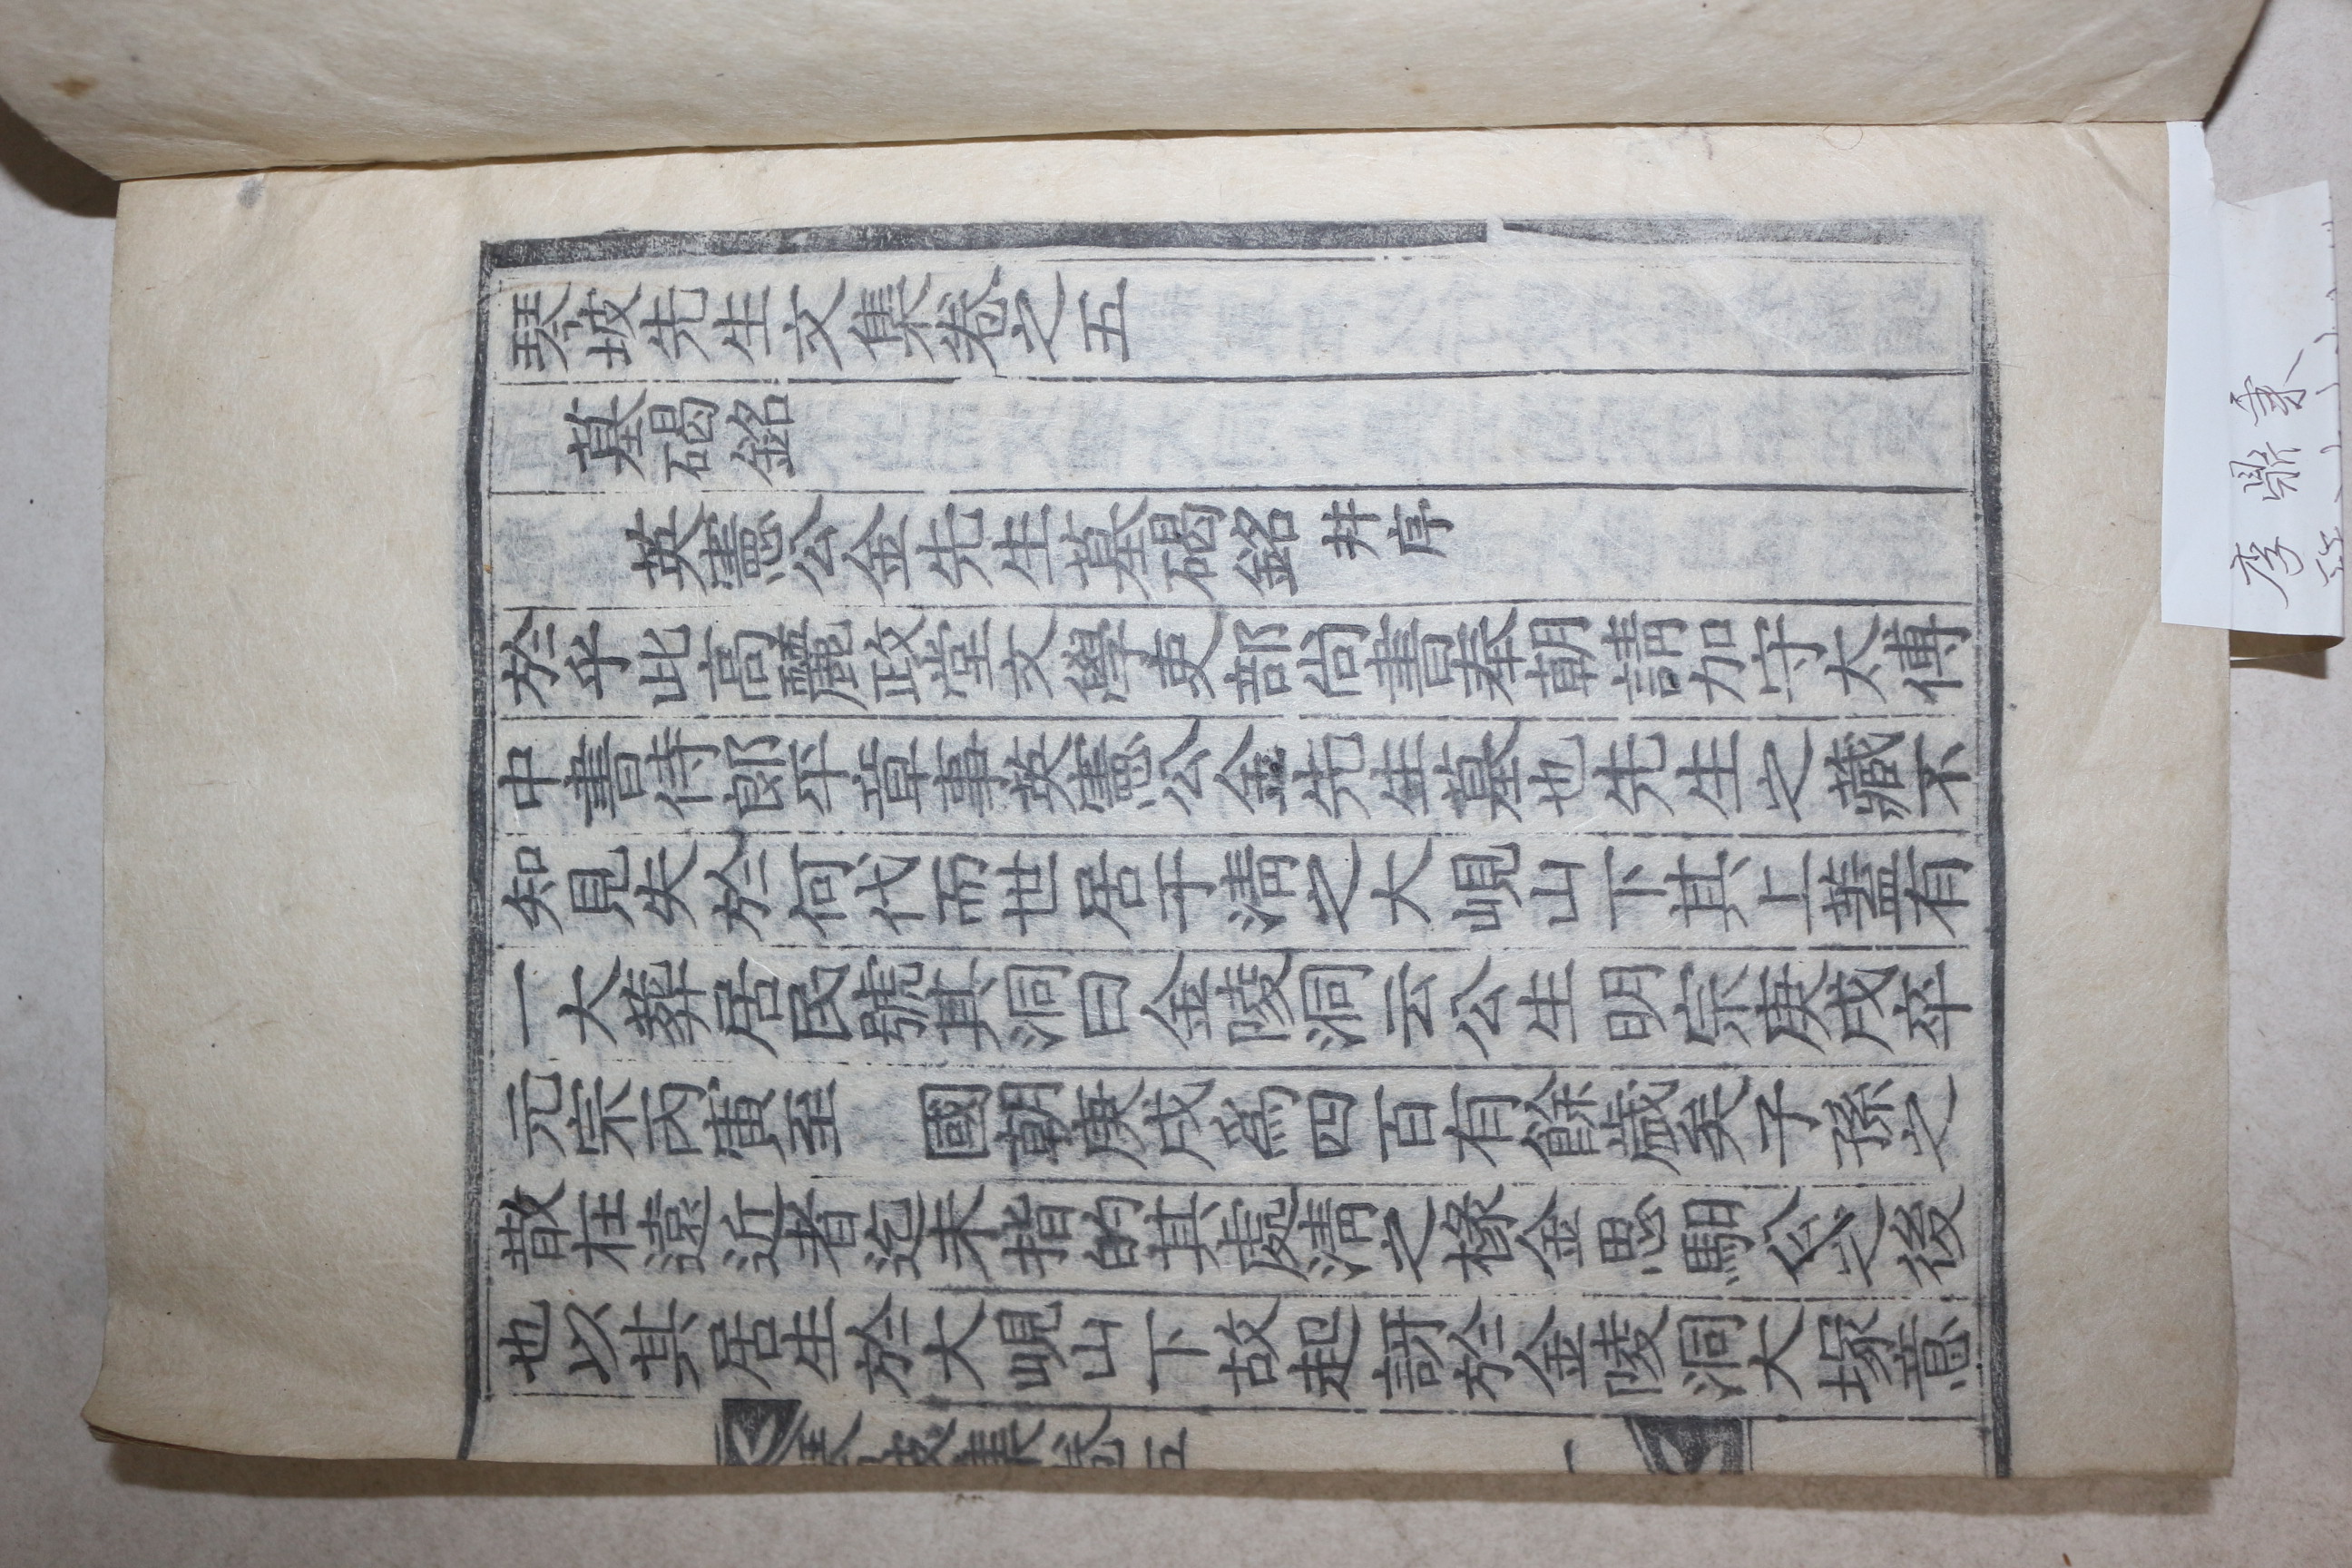 琴坡先生文集卷之五
墓碣銘
英憲公金先生墓碣銘 幷序
於乎此高麗政堂文學吏部尙書奉朝請加守太傅
中書侍郞平章事英憲公金先生墓也先生之藏不
知見失於何代而世居于淸之大峴山下其上蓋有
一大葬居民號其洞曰金陵洞云公生明宗庚戌卒
元宗丙寅至 國朝庚戌爲四百有餘歲矣子孫之
散在遠近者迄未指的其處淸之椽金思駉公之後
也以其居生於大峴山下故起訝於金陵洞大塚意
琴坡集卷五 一
李鼎秉